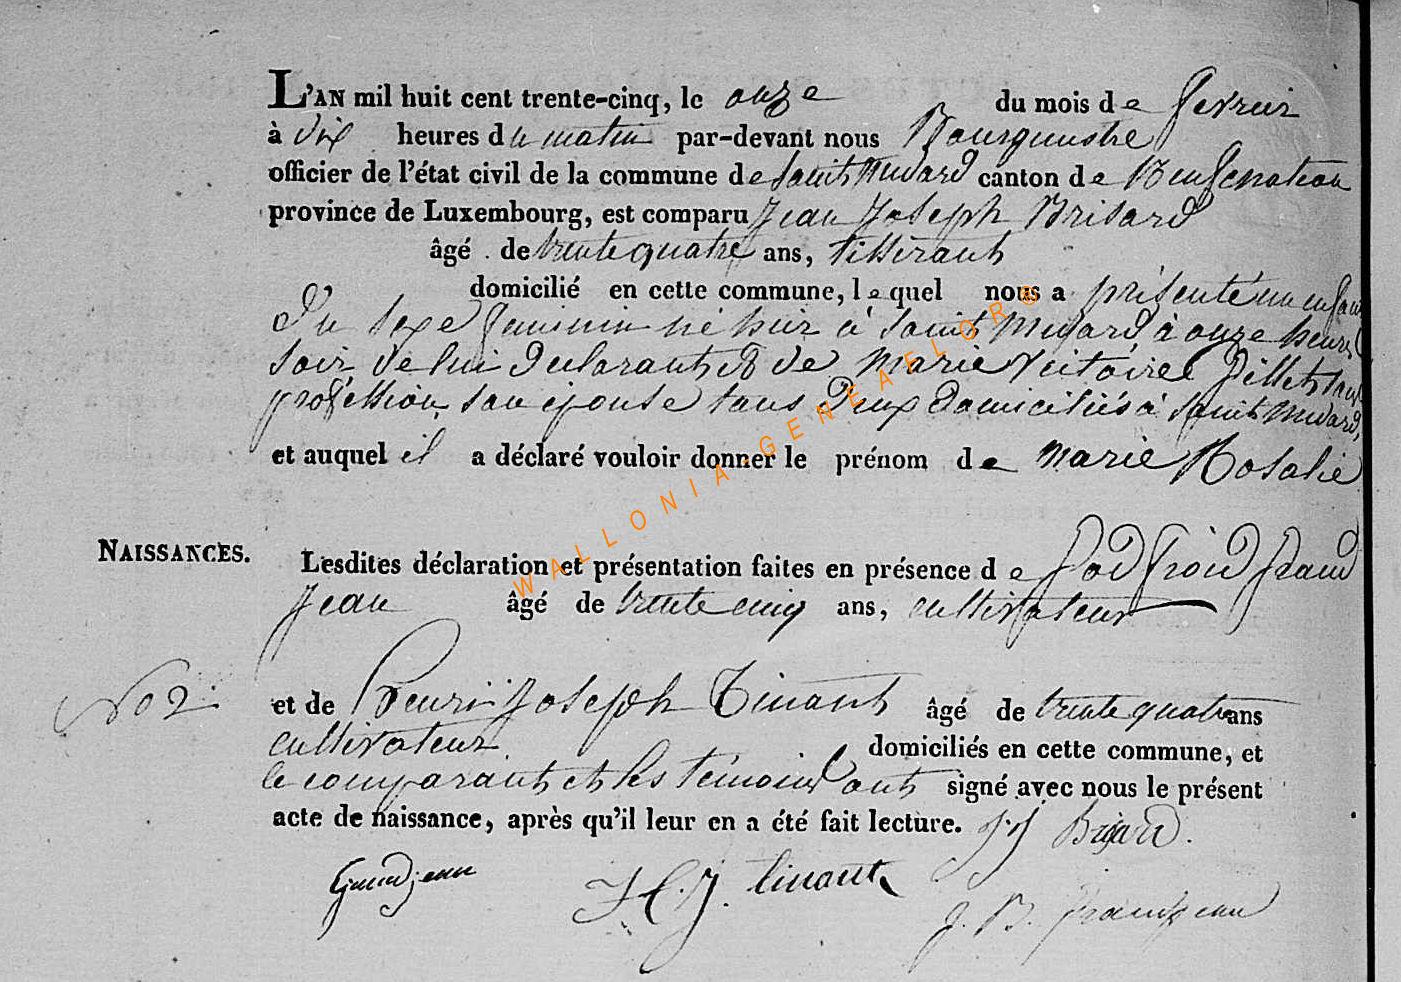 L'AN mil huit cent trente-cinq, le onze du mois de fevrier
à dix heures du matin par-devant nous Bourguestre
officier de l'état civil de la commune de Saint Medard canton de Neufchateau
province de Luxembourg, est comparu Jean Joseph Brisard
âgé de trente quatre ans, tisserant
domicilié en cette commune, lequel nous a présenté un enfant
du sexe feminin né hier à Saint Medard, à onze heures
soir, de lui declarant et de Marie Victoire Pillet sans
profession son epouse tous deux domiciliés à Saint Medard,
et auquel il a déclaré vouloir donner le prénom de Marie Rosalie
NAISSANCES.
Lesdites déclaration et présentation faites en présence de Godfroid Grand
Jean âgé de trente cinq ans, cultivateur
No 2
et de Henri Joseph Tinant âgé de trente quatre ans
cultivateur domiciliés en cette commune, et
le comparant et les témoins ont signé avec nous le présent
acte de naissance, après qu'il leur en a été fait lecture. J J Brisard.
Grandjean H. J. tinant
J. B. Grandjean
WALLONIA-GENEAELOR®